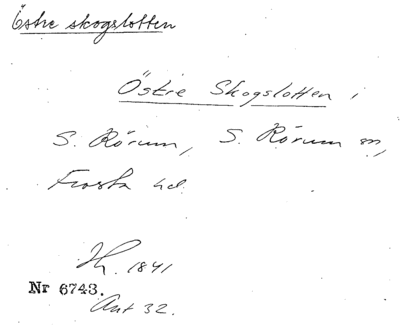 Östre skogslotten
Östre Skogslotten i
S. Rörum, S. Rörum sn,
Frosta hd.
Hy. 1841
Nr 6743.
Ant 32.